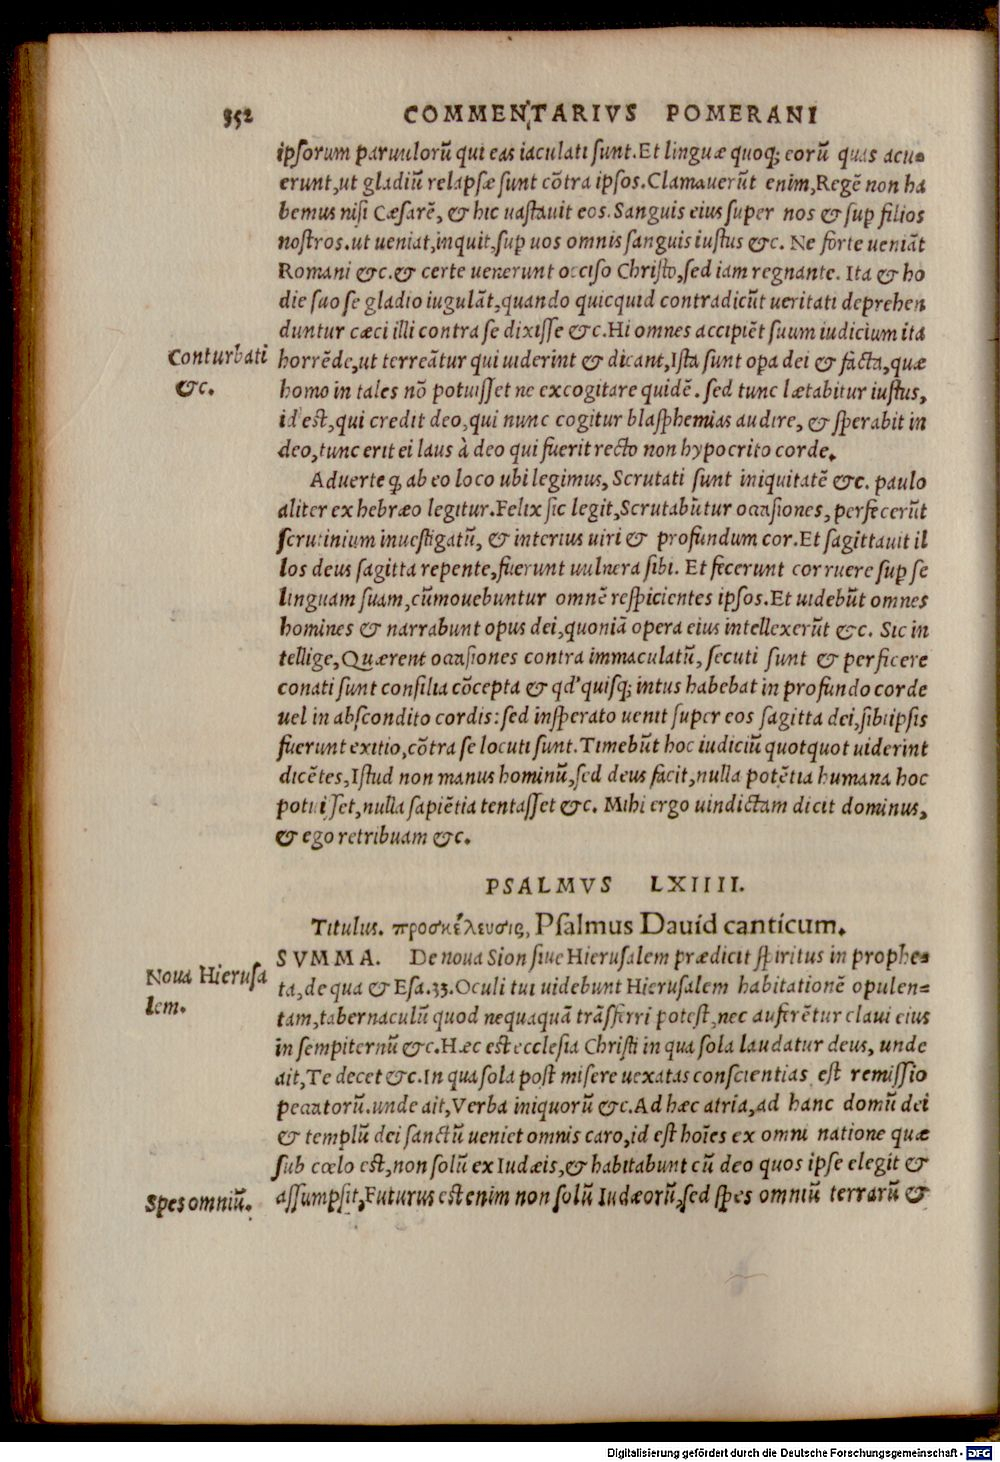 352 COMMENTARIVS POMERANI
ipsorum paruulorũ qui eas iaculati sunt.Et linguæ quoq; eorũ quas acu-
erunt,ut gladiũ relapsæ sunt cõtra ipsos.Clamauerũt enim,Regẽ non ha
bemus nisi Cæsarẽ, & hic uastauit eos.Sanguis eius super nos & sup filios
nostros.ut ueniat,inquit,sup uos omnis sanguis iustus &c. Ne forte ueniãt
Romani &c.& certe uenerunt occiso Christo,sed iam regnante. Ita & ho
die suo se gladio iugulãt,quando quicquid contradicũt ueritati deprehen
duntur cæci illi contra se dixisse &c.Hi omnes accipiẽt suum iudicium ita
Conturbati
&c.
horrẽde,ut terreãtur qui uiderint & dicant,Ista sunt opa dei & facta,quæ
homo in tales nõ potuisset ne excogitare quidẽ. sed tunc lætabitur iustus,
id est,qui credit deo,qui nunc cogitur blasphemias audire, & sperabit in
deo,tunc erit ei laus à deo qui fuerit recto non hypocrito corde.
Aduerte q, ab eo loco ubi legimus, Scrutati sunt iniquitatẽ &c. paulo
aliter ex hebræo legitur.Felix sic legit,Scrutabũtur occasiones, perfecerũt
scrutinium inuestigatũ, & interius uiri & profundum cor.Et sagittauit il
los deus sagitta repente,fuerunt uulnera sibi. Et fecerunt corruere sup se
linguam suam,cũmouebuntur omnẽ respicientes ipsos.Et uidebũt omnes
homines & narrabunt opus dei,quoniã opera eius intellexerũt &c. Sic in
tellige,Quærent occasiones contra immaculatũ, secuti sunt & perficere
conati sunt consilia cõcepta & qd' quisq; intus habebat in profundo corde
uel in abscondito cordis:sed insperato uenit super eos sagitta dei,sibiipsis
fuerunt exitio,cõtra se locuti sunt.Timebũt hoc iudiciũ quotquot uiderint
dicẽtes,Istud non manus hominũ,sed deus facit,nulla potẽtia humana hoc
potuisset,nulla sapiẽtia tentasset &c. Mihi ergo uindictam dicit dominus,
& ego retribuam &c.
PSALMVS LXIIII.
Titulus. προσκέλευσις, Psalmus Dauid canticum.
SVMMA. De noua Sion siue Hierusalem prædicit spiritus in prophe-
Noua Hierusa
lem.
ta,de qua & Esa.33.Oculi tui uidebunt Hierusalem habitationẽ opulen=
tam,tabernaculũ quod nequaquã trãsferri potest,nec auferẽtur claui eius
in sempiternũ &c.Hæc est ecclesia Christi in qua sola laudatur deus, unde
ait,Te decet &c.In qua sola post misere uexatas conscientias est remissio
peccatorũ.unde ait,Verba iniquorũ &c.Ad hæc atria,ad hanc domũ dei
& templũ dei sanctũ ueniet omnis caro,id est hoĩes ex omni natione quæ
sub cœlo est,non solũ ex Iudæis,& habitabunt cũ deo quos ipse elegit &
Spes omniũ.
assumpsit,Futurus est enim non solũ Iudæorũ,sed spes omniũ terrarũ &
Digitalisierung gefördert durch die Deutsche Forschungsgemeinschaft - DFG